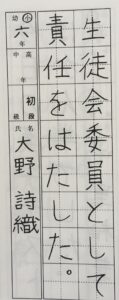 生徒会委員として
責任をはたした。
幼小
六年
中高
年
初段
級
氏名
大野詩織